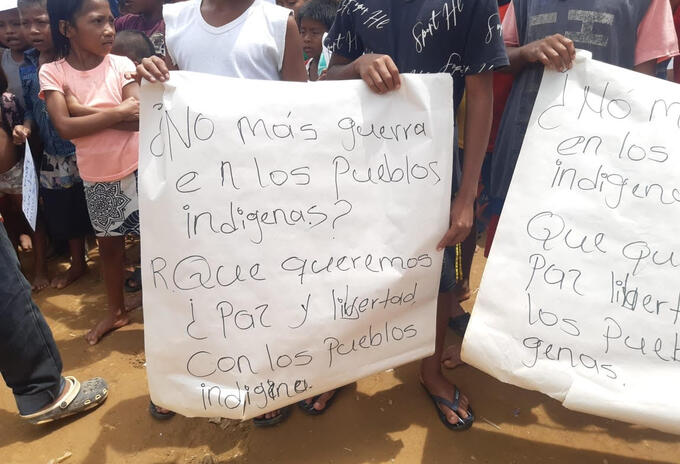 Sport
¿No más guerra
en los Pueblos
indigenas?
R. Que queremos
¿Paz y libertad
Con los Pueblos
indigena.
¿Nó m
en los
indígena
Que qu
Paz libert
los Pueb
genas.